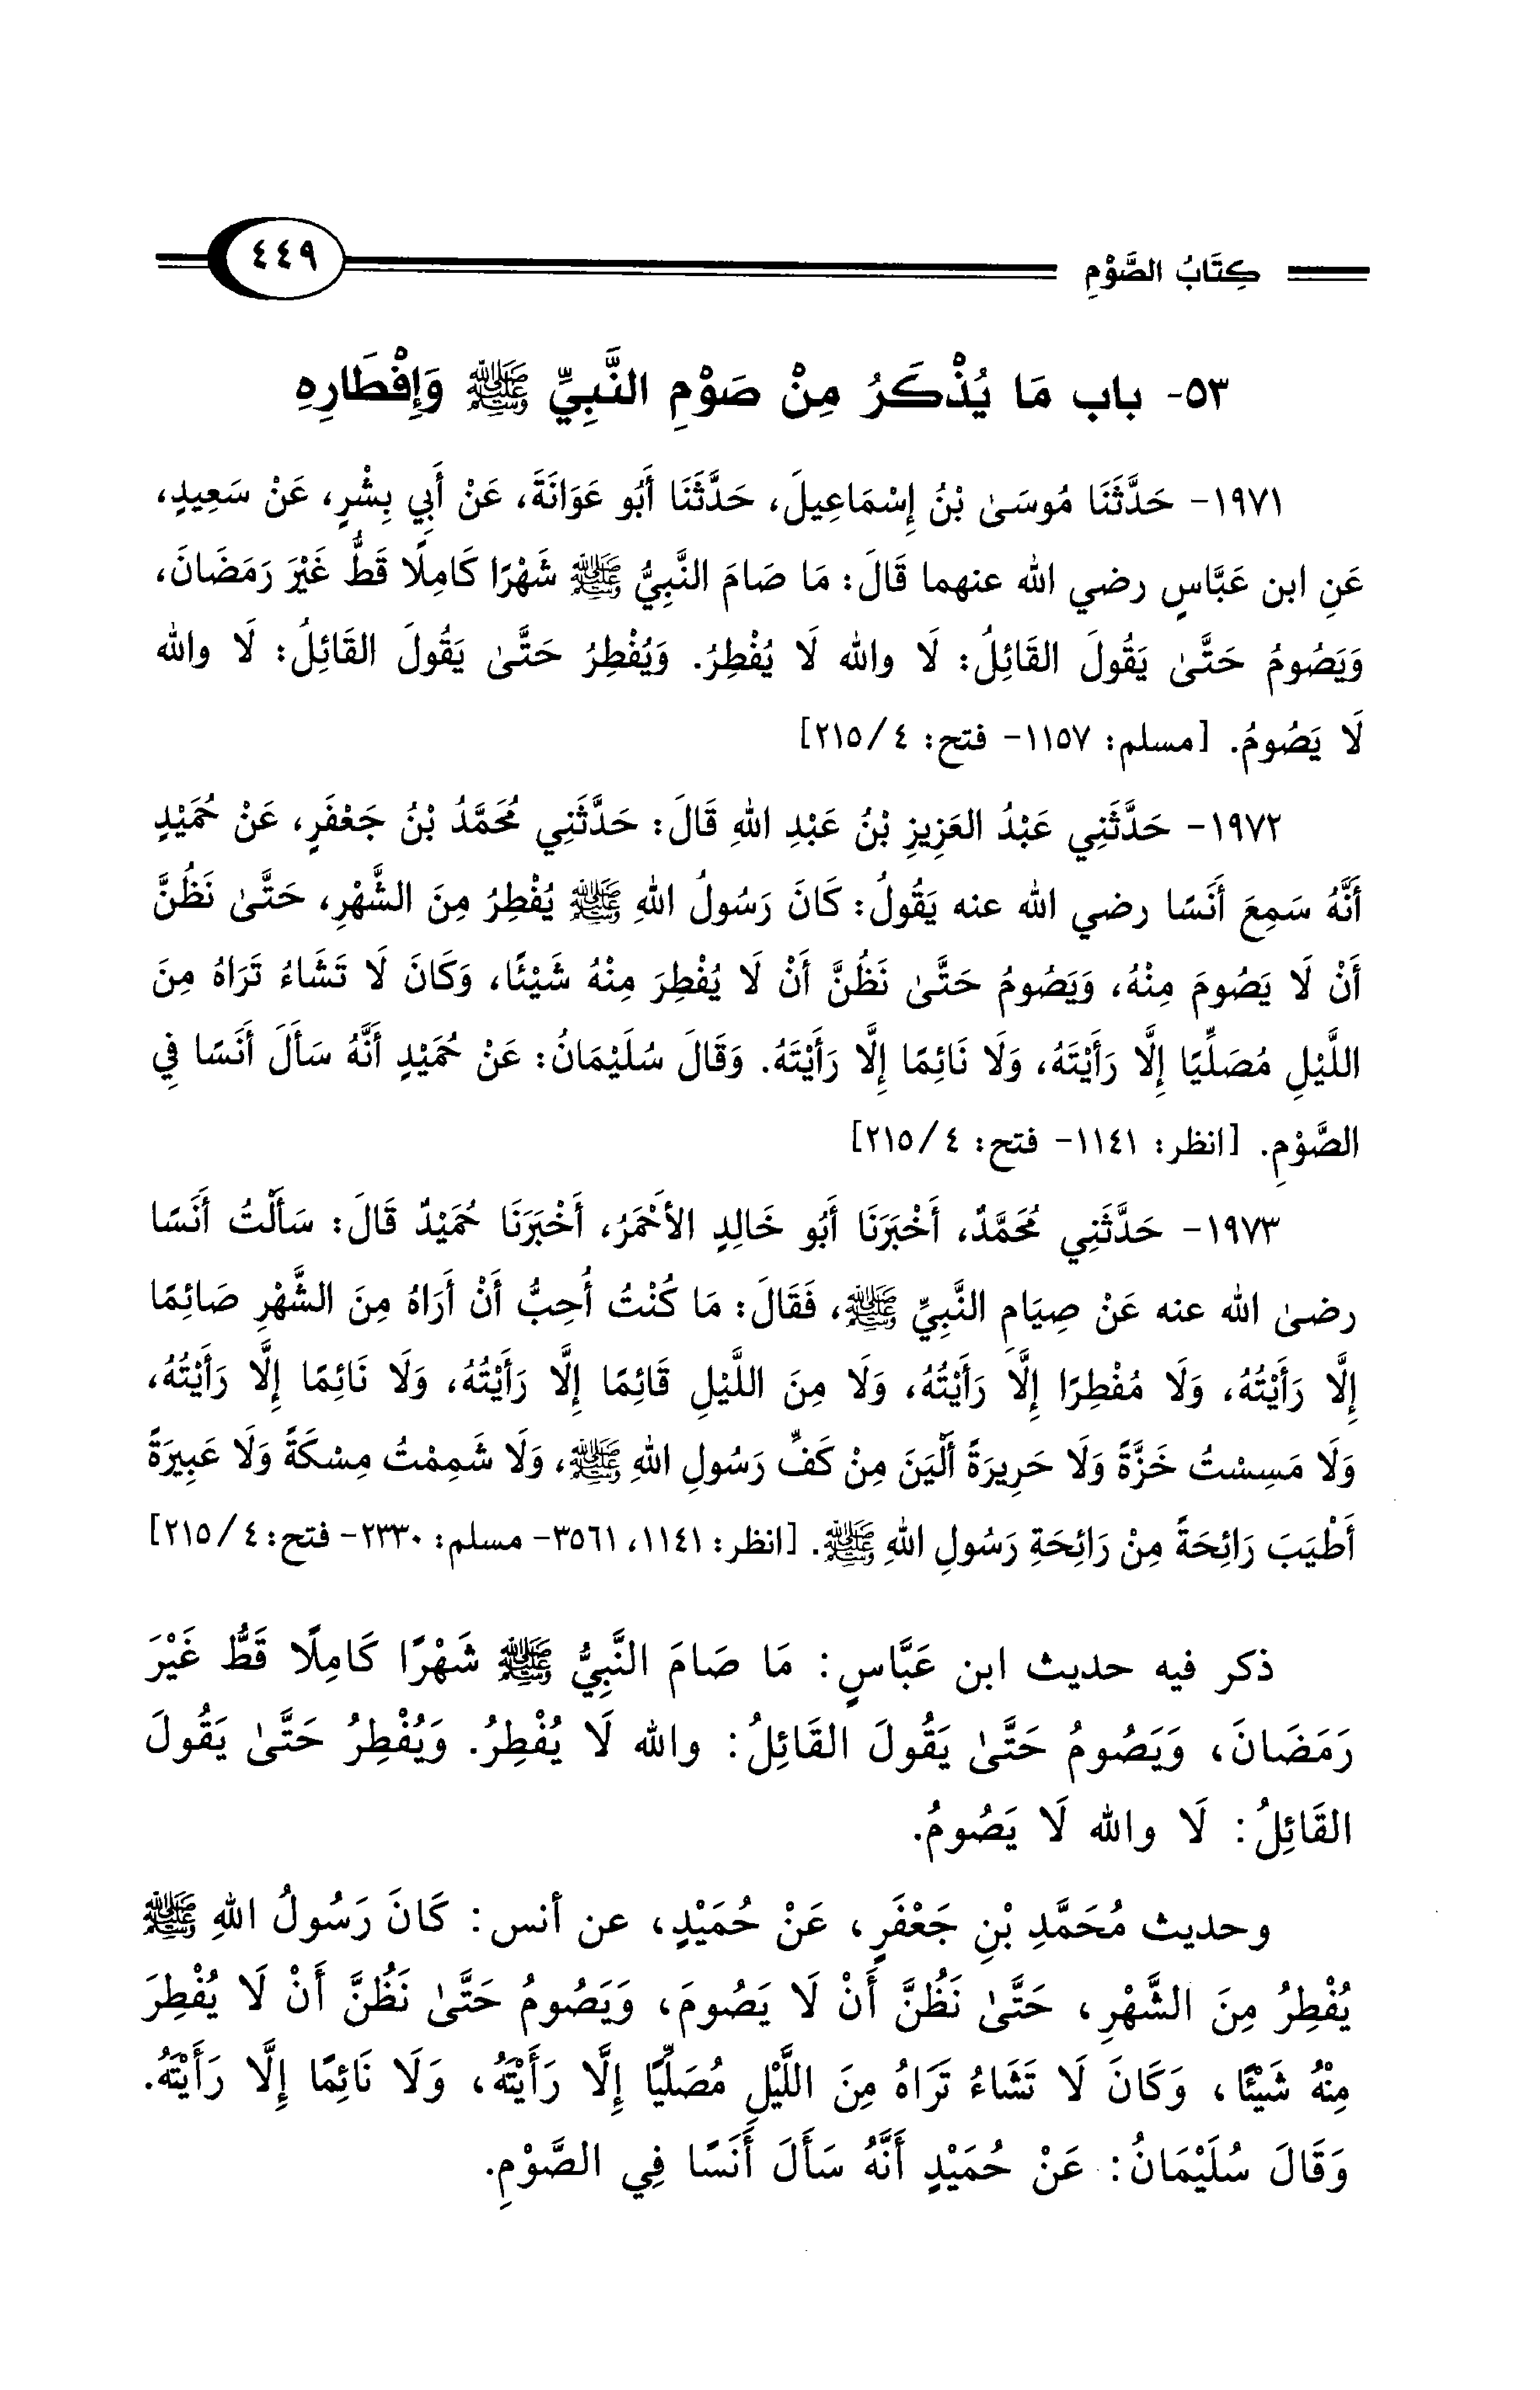 كِتَابُ الصَّوْمِ ٤٤٩
٥٣- باب مَا يُذْكَرُ مِنْ صَوْمِ النَّبِيِّ ﷺ وَإِفْطَارِهِ
١٩٧١- حَدَّثَنَا مُوسَىٰ بْنُ إِسْمَاعِيلَ، حَدَّثَنَا أَبُو عَوَانَةَ، عَنْ أَبِي بِشْرٍ، عَنْ سَعِيدٍ،
عَنِ ابن عَبَّاسٍ رضي الله عنهما قَالَ: مَا صَامَ النَّبِيُّ ﷺ شَهْرًا كَامِلًا قَطُّ غَيْرَ رَمَضَانَ،
وَيَصُومُ حَتَّىٰ يَقُولَ القَائِلُ: لَا والله لَا يُفْطِرُ. وَيُفْطِرُ حَتَّىٰ يَقُولَ القَائِلُ: لَا والله
لَا يَصُومُ. [مسلم: ١١٥٧- فتح: ٤/ ٢١٥]
١٩٧٢- حَدَّثَنِي عَبْدُ العَزِيزِ بْنُ عَبْدِ اللهِ قَالَ: حَدَّثَنِي مُحَمَّدُ بْنُ جَعْفَرٍ، عَنْ حُمَيْدٍ
أَنَّهُ سَمِعَ أَنَسًا رضي الله عنه يَقُولُ: كَانَ رَسُولُ اللهِ ﷺ يُفْطِرُ مِنَ الشَّهْرِ، حَتَّىٰ نَظُنَّ
أَنْ لَا يَصُومَ مِنْهُ، وَيَصُومُ حَتَّىٰ نَظُنَّ أَنْ لَا يُفْطِرَ مِنْهُ شَيْئًا، وَكَانَ لَا تَشَاءُ تَرَاهُ مِنَ
اللَّيْلِ مُصَلِّيًا إِلَّا رَأَيْتَهُ، وَلَا نَائِمًا إِلَّا رَأَيْتَهُ. وَقَالَ سُلَيْمَانُ: عَنْ حُمَيْدٍ أَنَّهُ سَأَلَ أَنَسًا فِي
الصَّوْمِ. [انظر: ١١٤١- فتح: ٤/ ٢١٥]
١٩٧٣- حَدَّثَنِي مُحَمَّدٌ، أَخْبَرَنَا أَبُو خَالِدٍ الأَحْمَرُ، أَخْبَرَنَا حُمَيْدٌ قَالَ: سَأَلْتُ أَنَسًا
رضىٰ الله عنه عَنْ صِيَامِ النَّبِيِّ ﷺ، فَقَالَ: مَا كُنْتُ أُحِبُّ أَنْ أَرَاهُ مِنَ الشَّهْرِ صَائِمًا
إِلَّا رَأَيْتُهُ، وَلَا مُفْطِرًا إِلَّا رَأَيْتُهُ، وَلَا مِنَ اللَّيْلِ قَائِمًا إِلَّا رَأَيْتُهُ، وَلَا نَائِمًا إِلَّا رَأَيْتُهُ،
وَلَا مَسِسْتُ خَزَّةً وَلَا حَرِيرَةً أَلْيَنَ مِنْ كَفِّ رَسُولِ اللهِ ﷺ، وَلَا شَمِمْتُ مِسْكَةً وَلَا عَبِيرَةً
أَطْيَبَ رَائِحَةً مِنْ رَائِحَةِ رَسُولِ اللهِ ﷺ. [انظر: ١١٤١، ٣٥٦١- مسلم: ٢٣٣٠- فتح: ٤/ ٢١٥]
ذكر فيه حديث ابن عَبَّاسٍ: مَا صَامَ النَّبِيُّ ﷺ شَهْرًا كَامِلًا قَطُّ غَيْرَ
رَمَضَانَ، وَيَصُومُ حَتَّىٰ يَقُولَ القَائِلُ: والله لَا يُفْطِرُ. وَيُفْطِرُ حَتَّىٰ يَقُولَ
القَائِلُ: لَا والله لَا يَصُومُ.
وحديث مُحَمَّدِ بْنِ جَعْفَرٍ، عَنْ حُمَيْدٍ، عن أنس: كَانَ رَسُولُ اللهِ ﷺ
يُفْطِرُ مِنَ الشَّهْرِ، حَتَّىٰ نَظُنَّ أَنْ لَا يَصُومَ، وَيَصُومُ حَتَّىٰ نَظُنَّ أَنْ لَا يُفْطِرَ
مِنْهُ شَيْئًا، وَكَانَ لَا تَشَاءُ تَرَاهُ مِنَ اللَّيْلِ مُصَلِّيًا إِلَّا رَأَيْتَهُ، وَلَا نَائِمًا إِلَّا رَأَيْتَهُ.
وَقَالَ سُلَيْمَانُ: عَنْ حُمَيْدٍ أَنَّهُ سَأَلَ أَنَسًا فِي الصَّوْمِ.